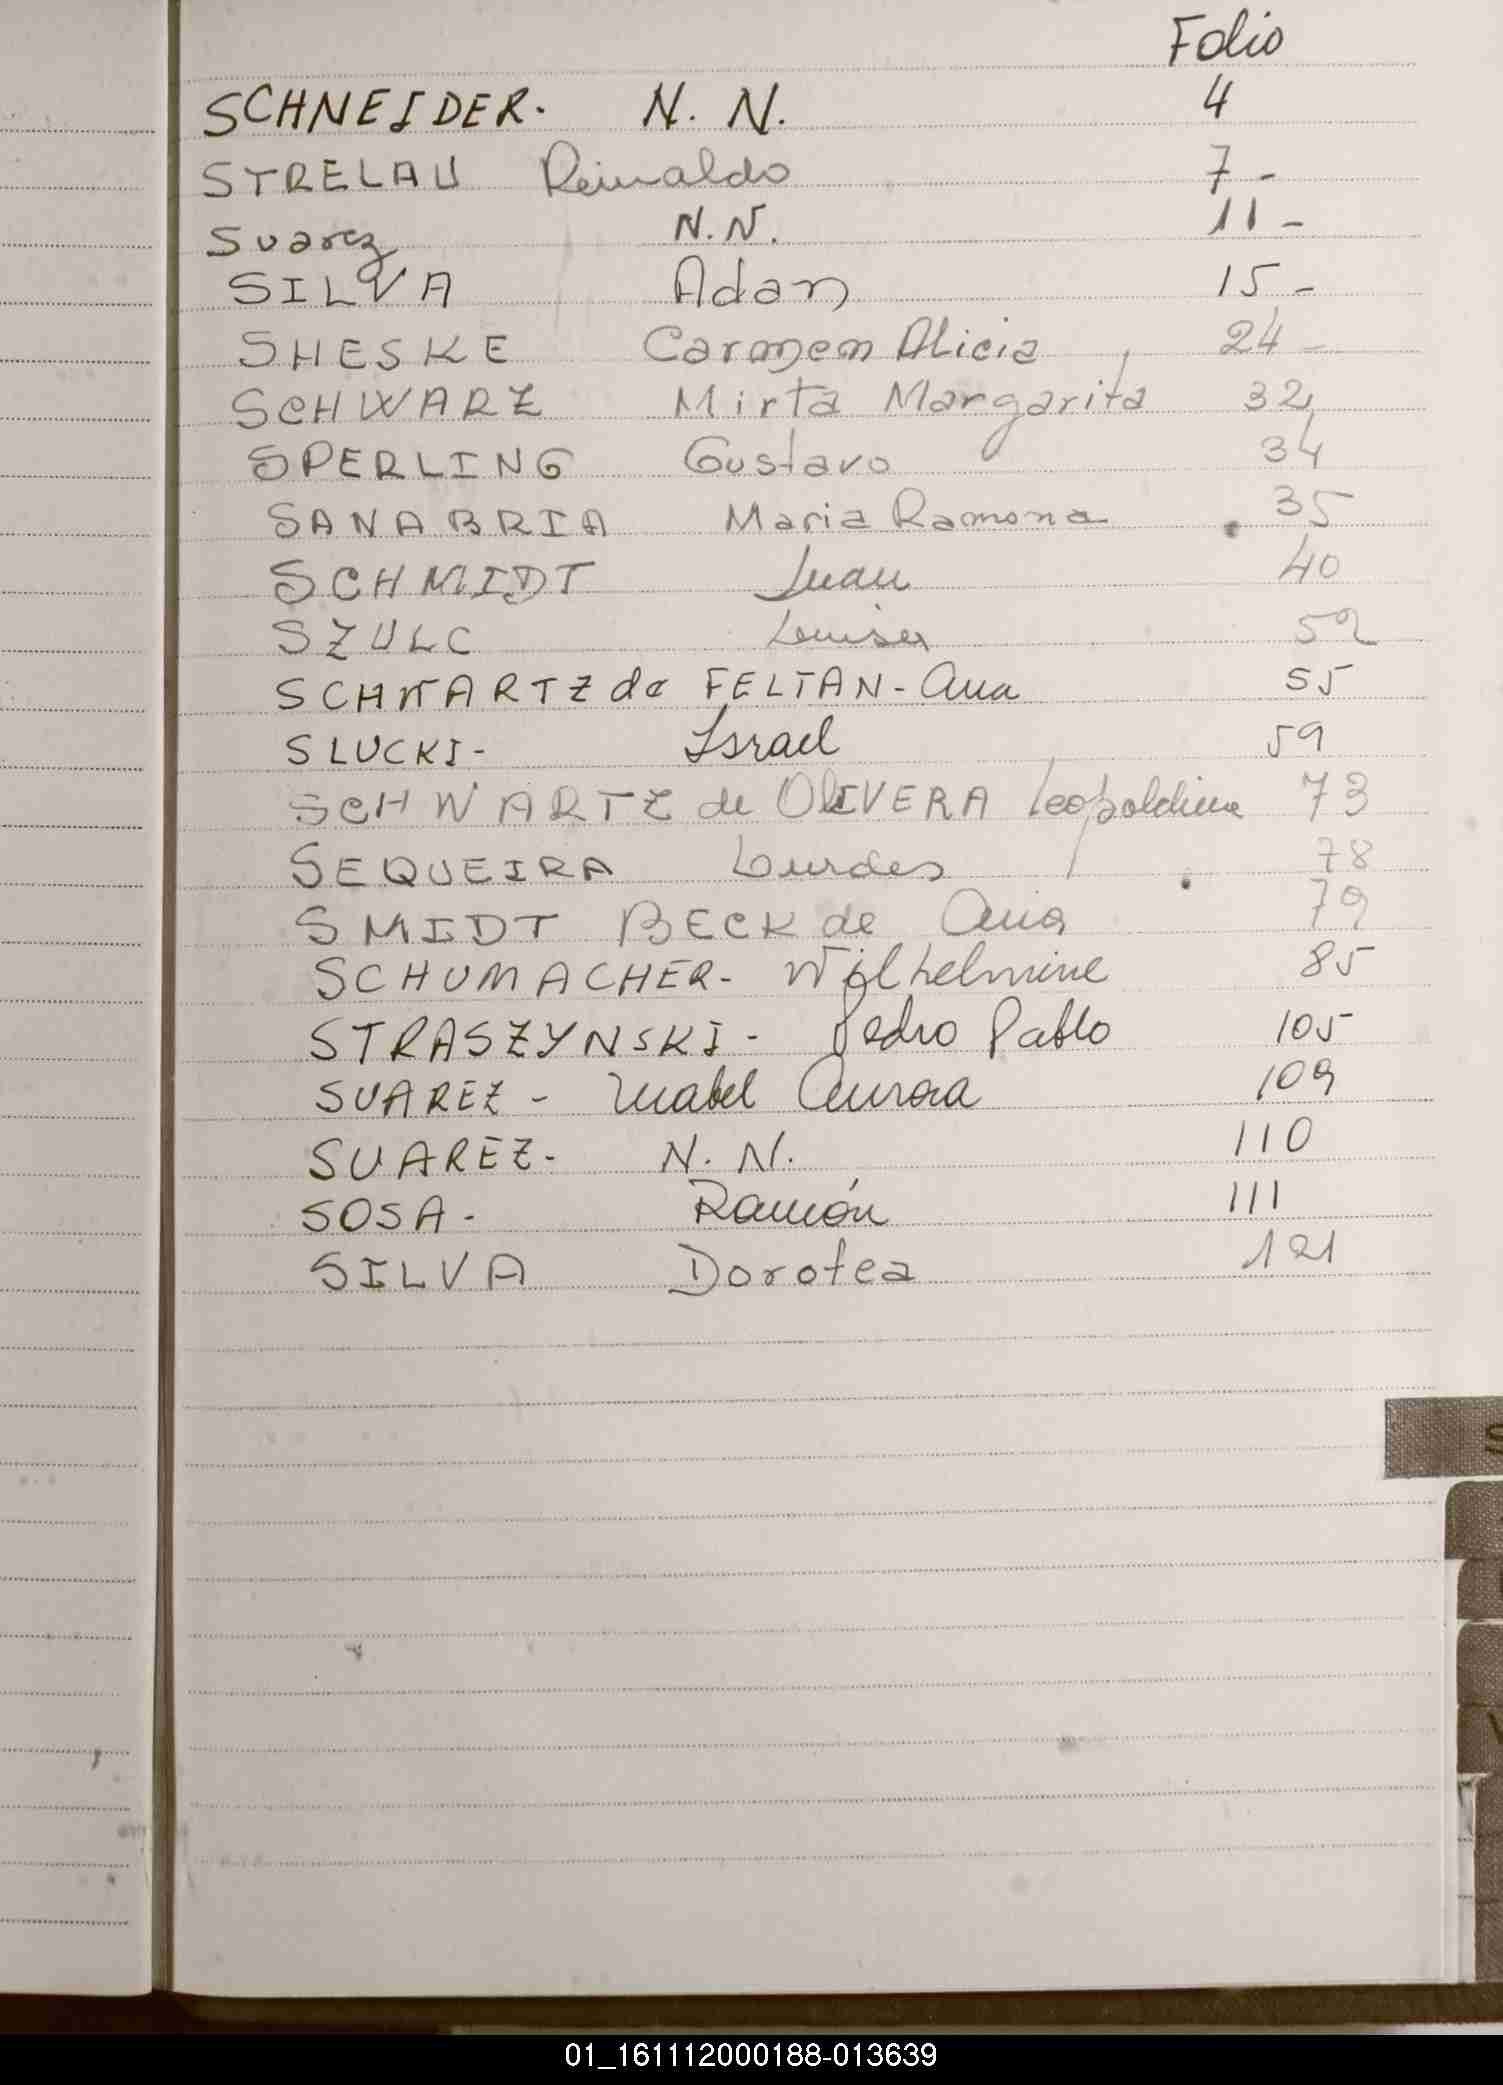 Folio
SCHNEIDER. N. N. 4
STRELAU Reinaldo 7 -
Suarez N.N. 11 -
SILVA Adan 15 -
SHESKE Carmen Alicia 24 -
SCHWARZ Mirta Margarita 32
SPERLING Gustavo 34
SANABRIA Maria Ramona 35
SCHMIDT Juan 40
SZULC Louisa 52
SCHWARTZ de FELTAN - Ana 55
SLUCKI - Israel 59
SCHWARTZ de OLIVERA Leopoldina 73
SEQUEIRA Lurdes 78
SMIDT BECK de Ana 79
SCHUMACHER - Wilhelmine 85
STRASZYNSKI - Pedro Pablo 105
SUAREZ - Mabel Aurora 109
SUAREZ - N. N. 110
SOSA - Ramón 111
SILVA Dorotea 121
S
V
01_161112000188-013639